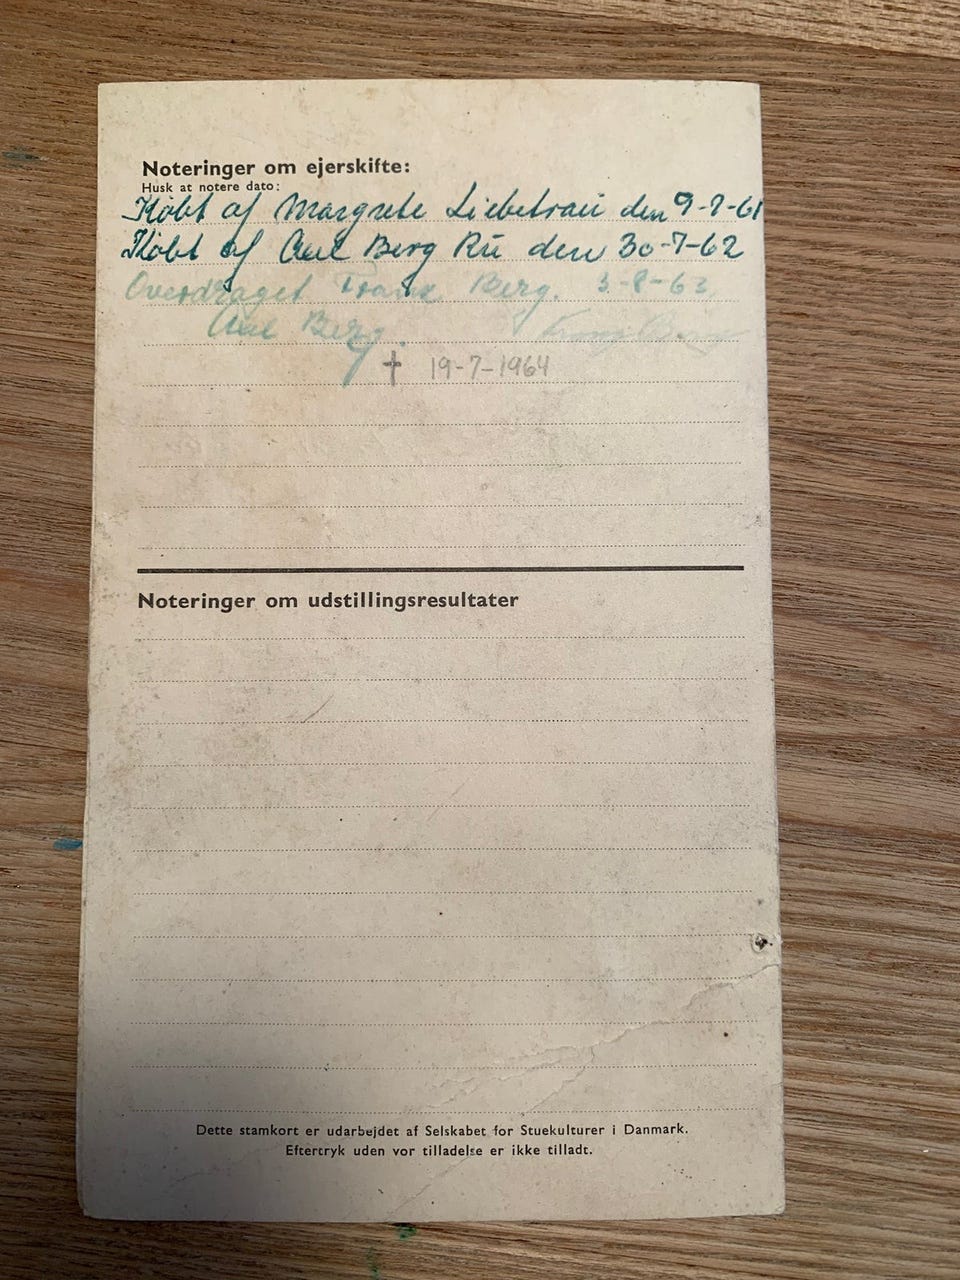 Noteringer om ejerskifte:
Husk at notere dato:
Købt af Margrete Liebetrau den 9-7-61
Købt af Axel Berg Rü den 30-7-62
Overdraget Frank Berg. 3-8-63
Axel Berg.
† 19-7-1964
Noteringer om udstillingsresultater
Dette stamkort er udarbejdet af Selskabet for Stuekulturer i Danmark.
Eftertryk uden vor tilladelse er ikke tilladt.